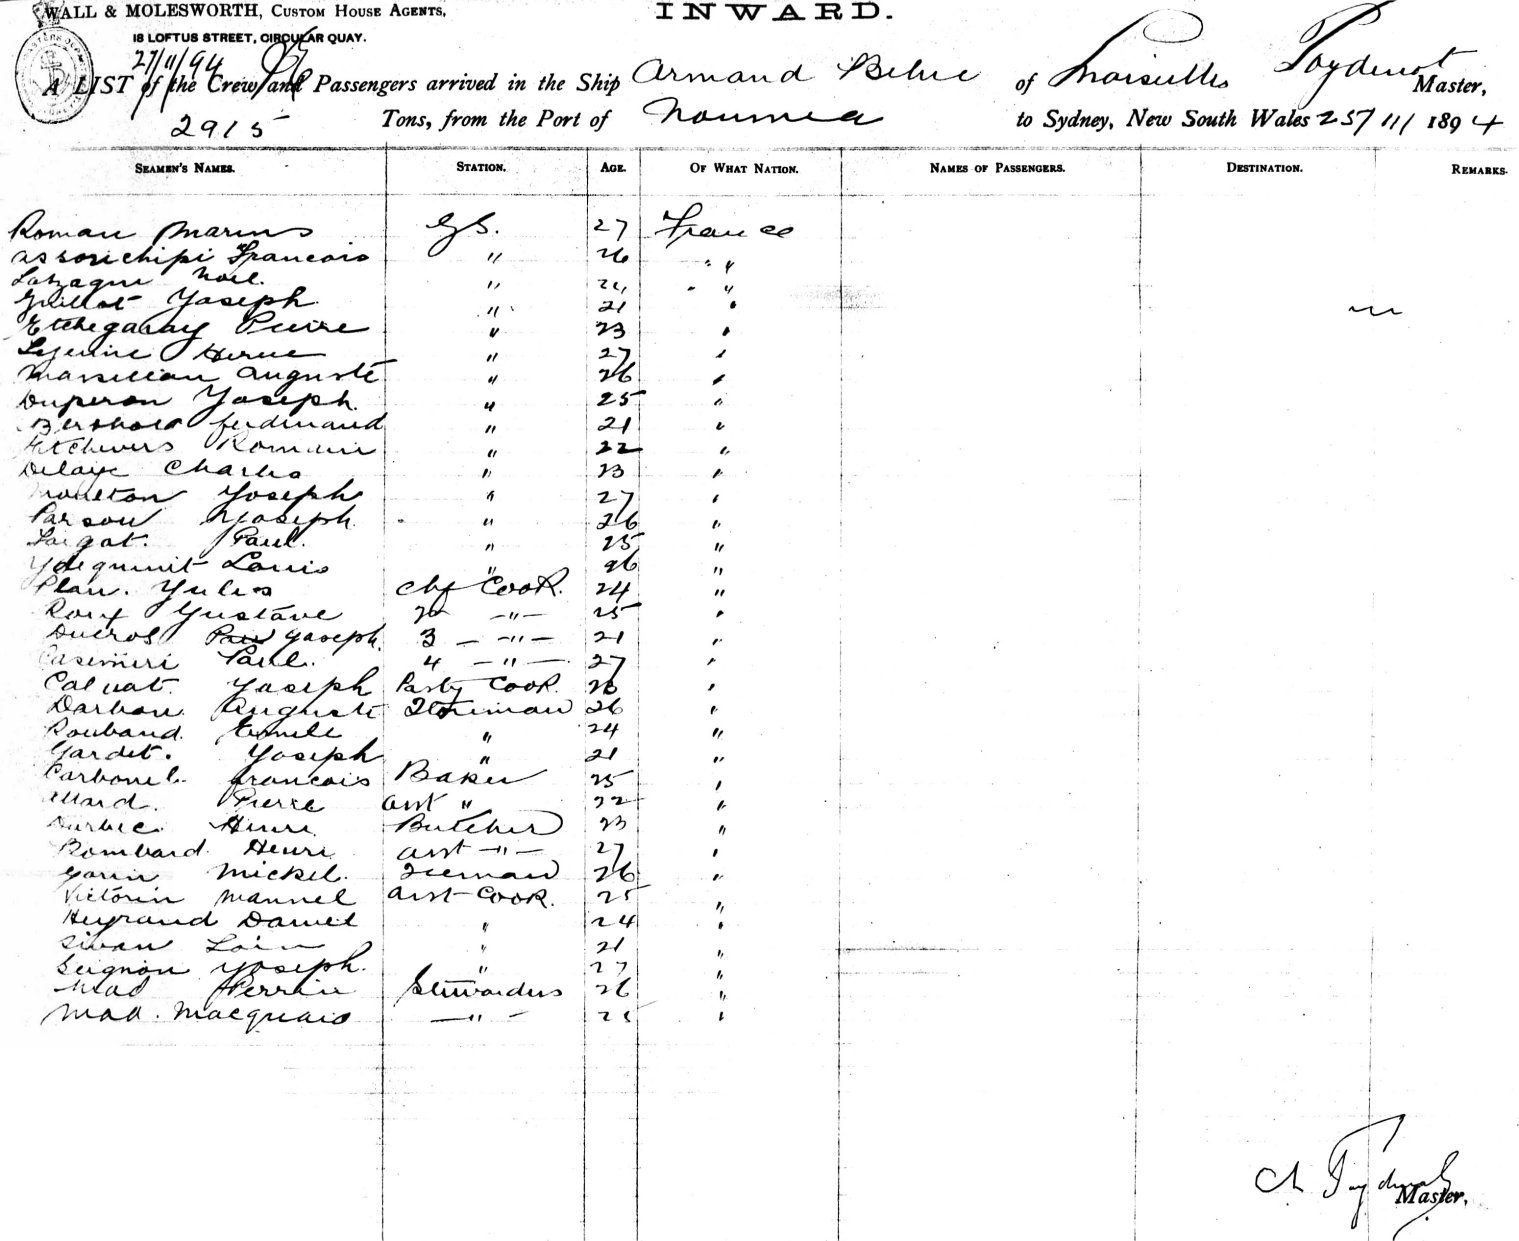 WALL & MOLESWORTH, CUSTOM HOUSE AGENTS,
18 LOFTUS STREET, CIRCULAR QUAY.
INWARD.
27/11/94
A LIST of the Crew and Passengers arrived in the Ship Armand Behic of Marseilles Poydenot Master,
2915 Tons, from the Port of Noumea to Sydney, New South Wales 25/11/1894
SEAMEN'S NAMES. STATION. AGE. OF WHAT NATION. NAMES OF PASSENGERS. DESTINATION. REMARKS.
Roman Marius GS. 27 France
Assonchipi Francois " 26 "
Noel " "
Guillot Yoseph " 21 "
Etchegaray Pierre " 23 "
Lejeune Herve " 27 "
Marsellian Auguste " 26 "
Duperon Yoseph. " 25 "
Ferdinand " 21 "
Romain " 22 "
Delaye Charles " 23 "
Mouleton Yoseph " 27 "
Parsou Yoseph. " 26 "
Paul. " 25 "
Louis " 26 "
Plan. Yules Chf Cook. 24 "
Roux Gustave 2d -"- 25 "
Ducros Yoseph. 3 - -"- 21 "
Casimiri Paul. 4 -"- 27 "
Calvat. Yoseph Pastry Cook. 23 "
Darbon Auguste Storeman 26 "
Roubaud Emile " 24 "
Gardet. Yoseph " 21 "
Carbonel. Francois Baker 25 "
Allard. Pierre asst " 22 "
Henri Butcher 23 "
Rombard Henri asst -"- 27 "
Garin Mickel. 26 "
Victorin Manuel asst Cook. 25 "
Heyraud Daniel " 24 "
Sivan " 21 "
Seignon Yoseph. " 27 "
Mad Perrin Stewardess 26 "
Mad. Macquais -"- 25 "
Poydenot
Master,